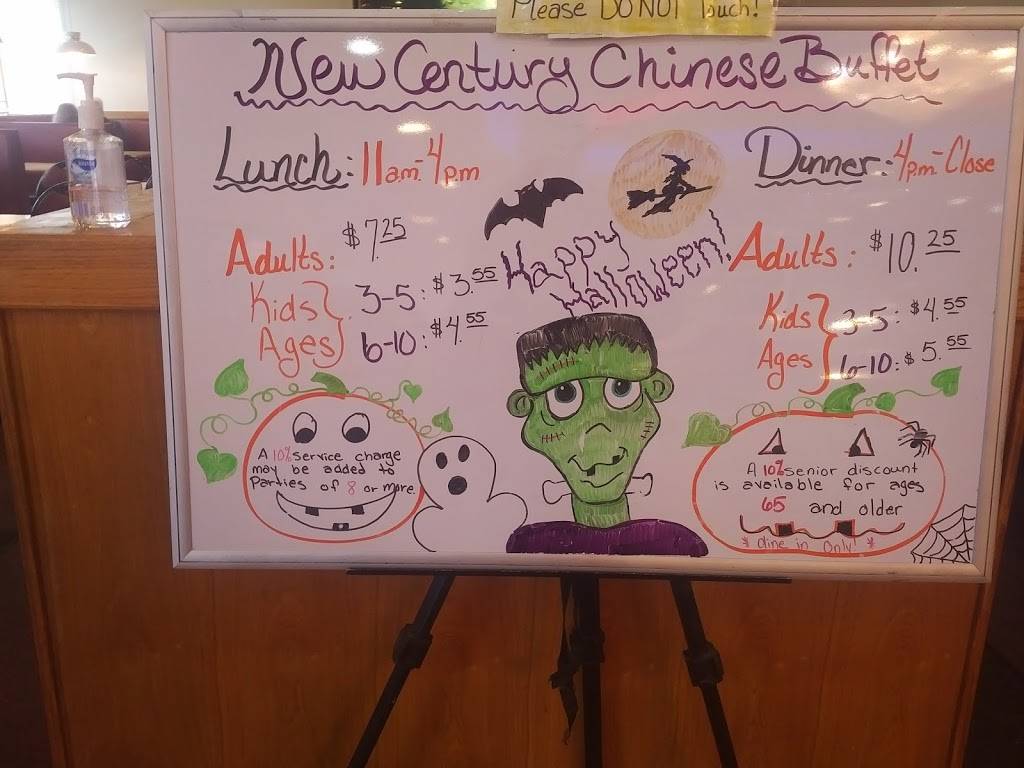 Please DO NOT Touch!
New Century Chinese Buffet
Lunch: 11a.m.-4p.m
Adults: $7.25
Kids Ages
3-5: $3.55
6-10: $4.55
Happy
Halloween!
Dinner: 4p.m-Close
Adults: $10.25
Kids Ages
3-5: $4.55
6-10: $5.55
A 10% service charge
may be added to
Parties of 8 or more.
A 10% senior discount
is available for ages
65 and older
* dine in only! *